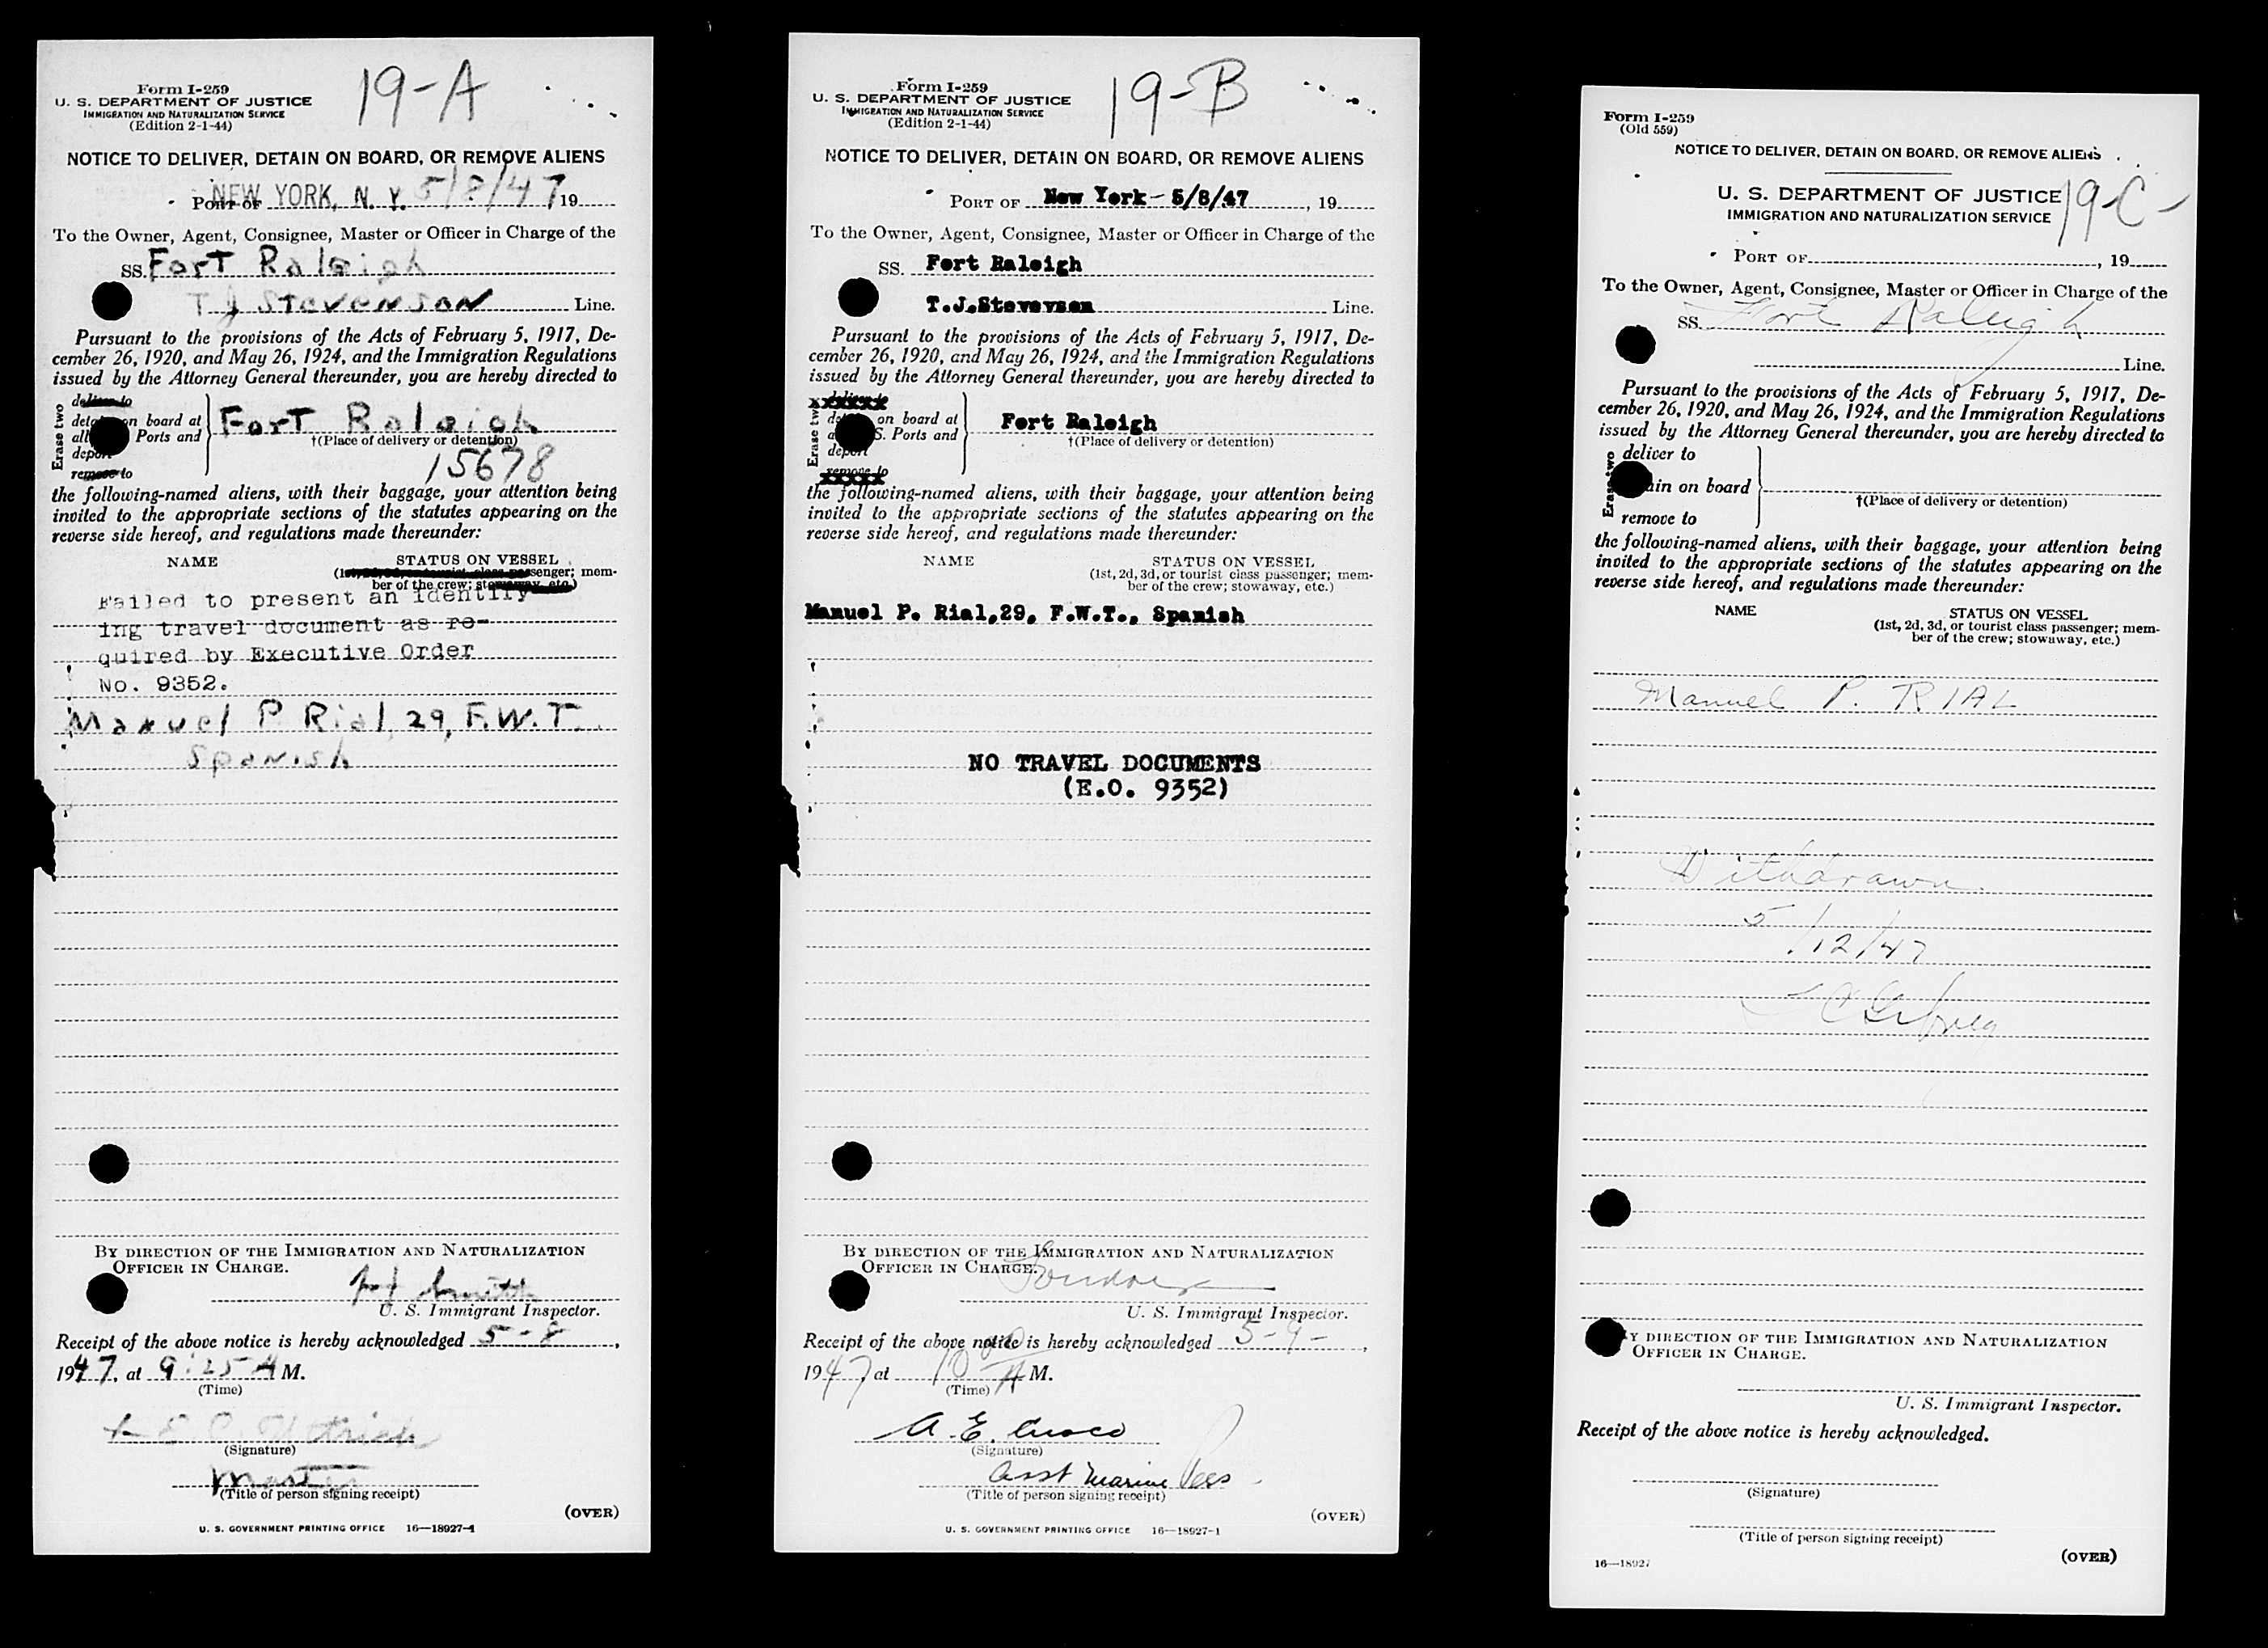 19-A
Form I-259
U. S. DEPARTMENT OF JUSTICE
IMMIGRATION AND NATURALIZATION SERVICE
(Edition 2-1-44)
NOTICE TO DELIVER, DETAIN ON BOARD, OR REMOVE ALIENS
PORT OF NEW YORK, N. Y. 5/8/47, 19
To the Owner, Agent, Consignee, Master or Officer in Charge of the
SS. Fort Raleigh
T J Stevenson Line.
Pursuant to the provisions of the Acts of February 5, 1917, De-
cember 26, 1920, and May 26, 1924, and the Immigration Regulations
issued by the Attorney General thereunder, you are hereby directed to
Erase two
deliver to
on board at
Ports and
remove to
Fort Raleigh
†(Place of delivery or detention)
15678
the following-named aliens, with their baggage, your attention being
invited to the appropriate sections of the statutes appearing on the
reverse side hereof, and regulations made thereunder:
NAME STATUS ON VESSEL
senger; mem-
ber of the crew; stowaway, etc.)
Failed to present an identify-
ing travel document as re-
quired by Executive Order
No. 9352.
Manuel P Rial, 29, F.W.T.
Spanish
BY DIRECTION OF THE IMMIGRATION AND NATURALIZATION
OFFICER IN CHARGE.
Smith
U. S. Immigrant Inspector.
Receipt of the above notice is hereby acknowledged 5-8,
1947, at 9:25 A M.
(Time)
(Signature)
Master
(Title of person signing receipt)
(OVER)
U. S. GOVERNMENT PRINTING OFFICE 16—18927-1
19-B
Form I-259
U. S. DEPARTMENT OF JUSTICE
IMMIGRATION AND NATURALIZATION SERVICE
(Edition 2-1-44)
NOTICE TO DELIVER, DETAIN ON BOARD, OR REMOVE ALIENS
PORT OF New York- 5/8/47, 19
To the Owner, Agent, Consignee, Master or Officer in Charge of the
SS. Fort Raleigh
T.J.Stevevson Line.
Pursuant to the provisions of the Acts of February 5, 1917, De-
cember 26, 1920, and May 26, 1924, and the Immigration Regulations
issued by the Attorney General thereunder, you are hereby directed to
Erase two
deliver to
on board at
S. Ports and
deport
remove to
Fort Raleigh
†(Place of delivery or detention)
the following-named aliens, with their baggage, your attention being
invited to the appropriate sections of the statutes appearing on the
reverse side hereof, and regulations made thereunder:
NAME STATUS ON VESSEL
(1st, 2d, 3d, or tourist class passenger; mem-
ber of the crew; stowaway, etc.)
Manuel P. Rial,29, F.W.T., Spanish
NO TRAVEL DOCUMENTS
(E.O. 9352)
BY DIRECTION OF THE IMMIGRATION AND NATURALIZATION
OFFICER IN CHARGE.
U. S. Immigrant Inspector.
Receipt of the above notice is hereby acknowledged 5-9-,
1947, at 10 A M.
(Time)
A. E.
(Signature)
Asst Marine
(Title of person signing receipt)
(OVER)
U. S. GOVERNMENT PRINTING OFFICE 16—18927-1
Form I-259
(Old 559)
NOTICE TO DELIVER, DETAIN ON BOARD, OR REMOVE ALIENS
U. S. DEPARTMENT OF JUSTICE
IMMIGRATION AND NATURALIZATION SERVICE
19-C-
PORT OF, 19
To the Owner, Agent, Consignee, Master or Officer in Charge of the
SS. Fort Raleigh
Line.
Pursuant to the provisions of the Acts of February 5, 1917, De-
cember 26, 1920, and May 26, 1924, and the Immigration Regulations
issued by the Attorney General thereunder, you are hereby directed to
Erase two
deliver to
ain on board
remove to
†(Place of delivery or detention)
the following-named aliens, with their baggage, your attention being
invited to the appropriate sections of the statutes appearing on the
reverse side hereof, and regulations made thereunder:
NAME STATUS ON VESSEL
(1st, 2d, 3d, or tourist class passenger; mem-
ber of the crew; stowaway, etc.)
Manuel P. RIAL
Withdrawn
5/12/47
BY DIRECTION OF THE IMMIGRATION AND NATURALIZATION
OFFICER IN CHARGE.
U. S. Immigrant Inspector.
Receipt of the above notice is hereby acknowledged.
(Signature)
(Title of person signing receipt)
16—18927
(OVER)